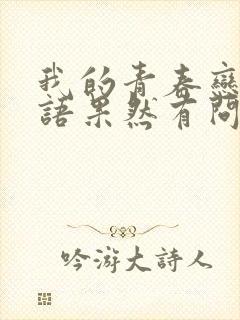 我的青春戀
語果然有問
吟游大詩人